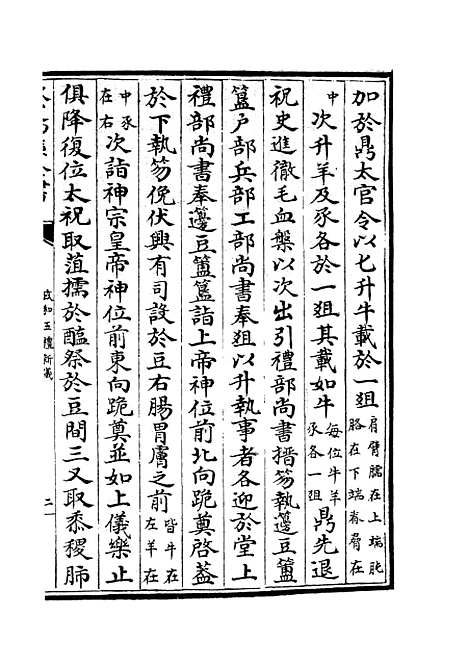 加於鼎太官令以匕升牛載於一俎肩臂臑在上端肫胳在下端脊脅在
中次升羊及豕各於一俎其載如牛每位牛羊豕各一俎鼎先退
祝史進徹毛血槃以次出引禮部尚書搢笏執籩豆簠
簋户部兵部工部尚書奉俎以升執事者各迎於堂上
禮部尚書奉籩豆簠簋詣上帝神位前北向跪奠啓蓋
於下執笏俛伏興有司設於豆右腸胃膚之前皆牛在左羊在
中豕在右次詣神宗皇帝神位前東向跪奠並如上儀樂止
俱降復位太祝取菹擩於醢祭於豆間三又取黍稷肺
政和五禮新儀